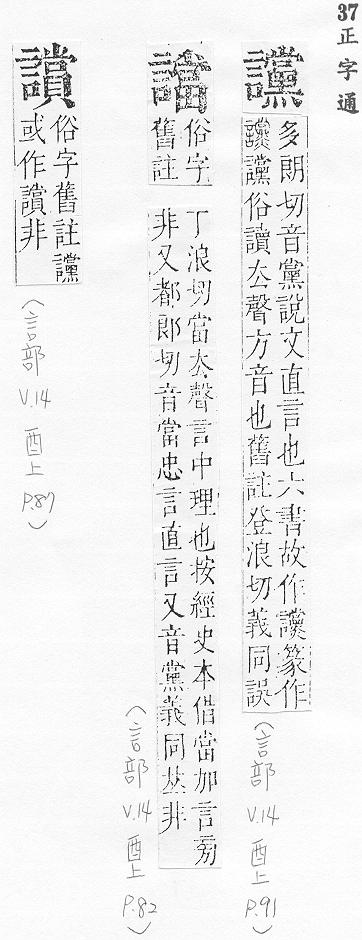 37 正字通
讜
多朗切音黨說文直言也六書故作讜篆作
讜俗讀厺聲方音也舊註登浪切義同誤
(言部 V.14 酉上 P.91)
譡
俗字
舊註
丁浪切當厺聲言中理也按經史本借當加言㫄
非又都郎切音當忠言直言又音黨義同𠀤非
(言部 V.14 酉上 P.82)
俗字舊註讜
或作非
(言部 V.14 酉上 P.87)